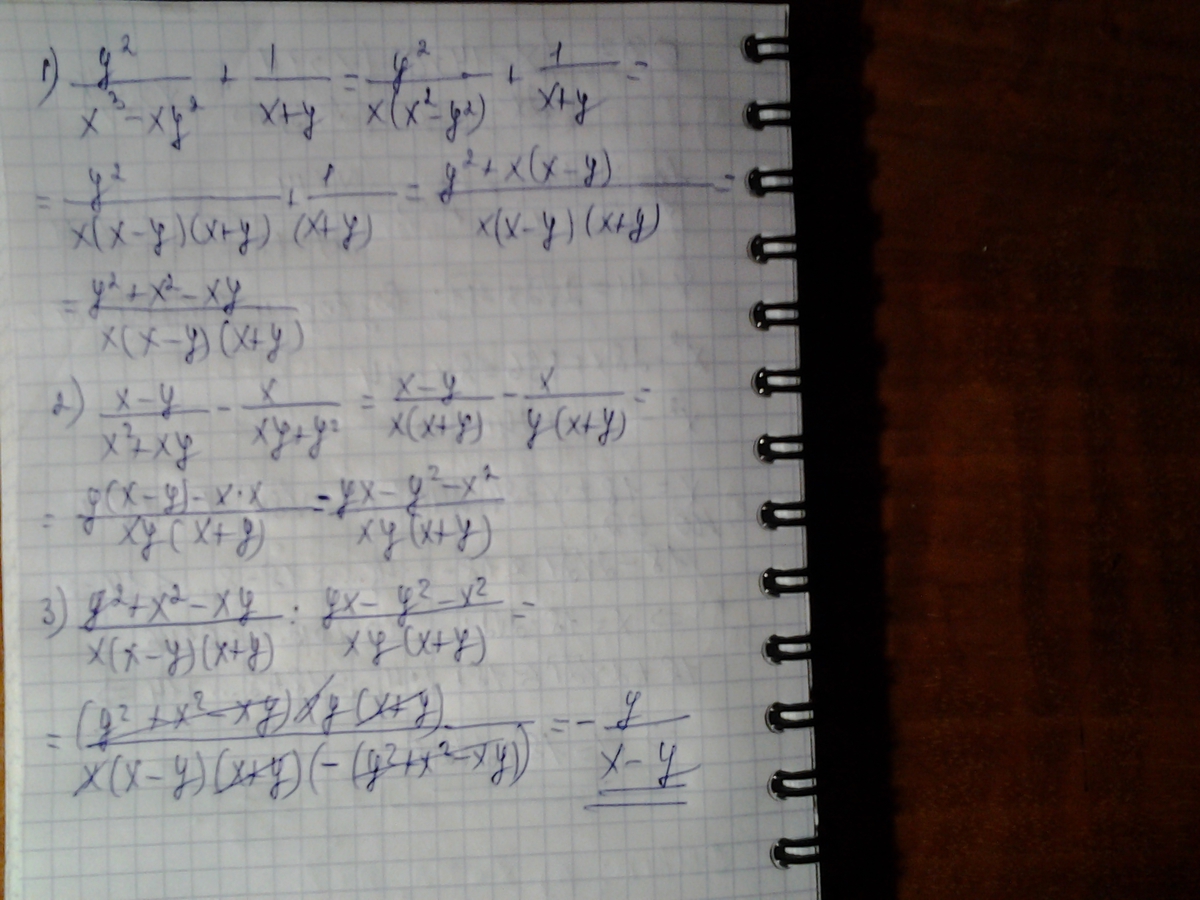 1) y²/(x³-xy²) + 1/(x+y) = y²/(x(x²-y²)) + 1/(x+y) =
= y²/(x(x-y)(x+y)) + 1/(x+y) = (y²+x(x-y))/(x(x-y)(x+y)) =
= (y²+x²-xy)/(x(x-y)(x+y))
2) (x-y)/(x²+xy) - x/(xy+y²) = (x-y)/(x(x+y)) - x/(y(x+y)) =
= (y(x-y)-x·x)/(xy(x+y)) = (yx-y²-x²)/(xy(x+y))
3) (y²+x²-xy)/(x(x-y)(x+y)) : (yx-y²-x²)/(xy(x+y)) =
= ((y²+x²-xy)xy(x+y))/(x(x-y)(x+y)(-(y²+x²-xy))) = - y/(x-y)